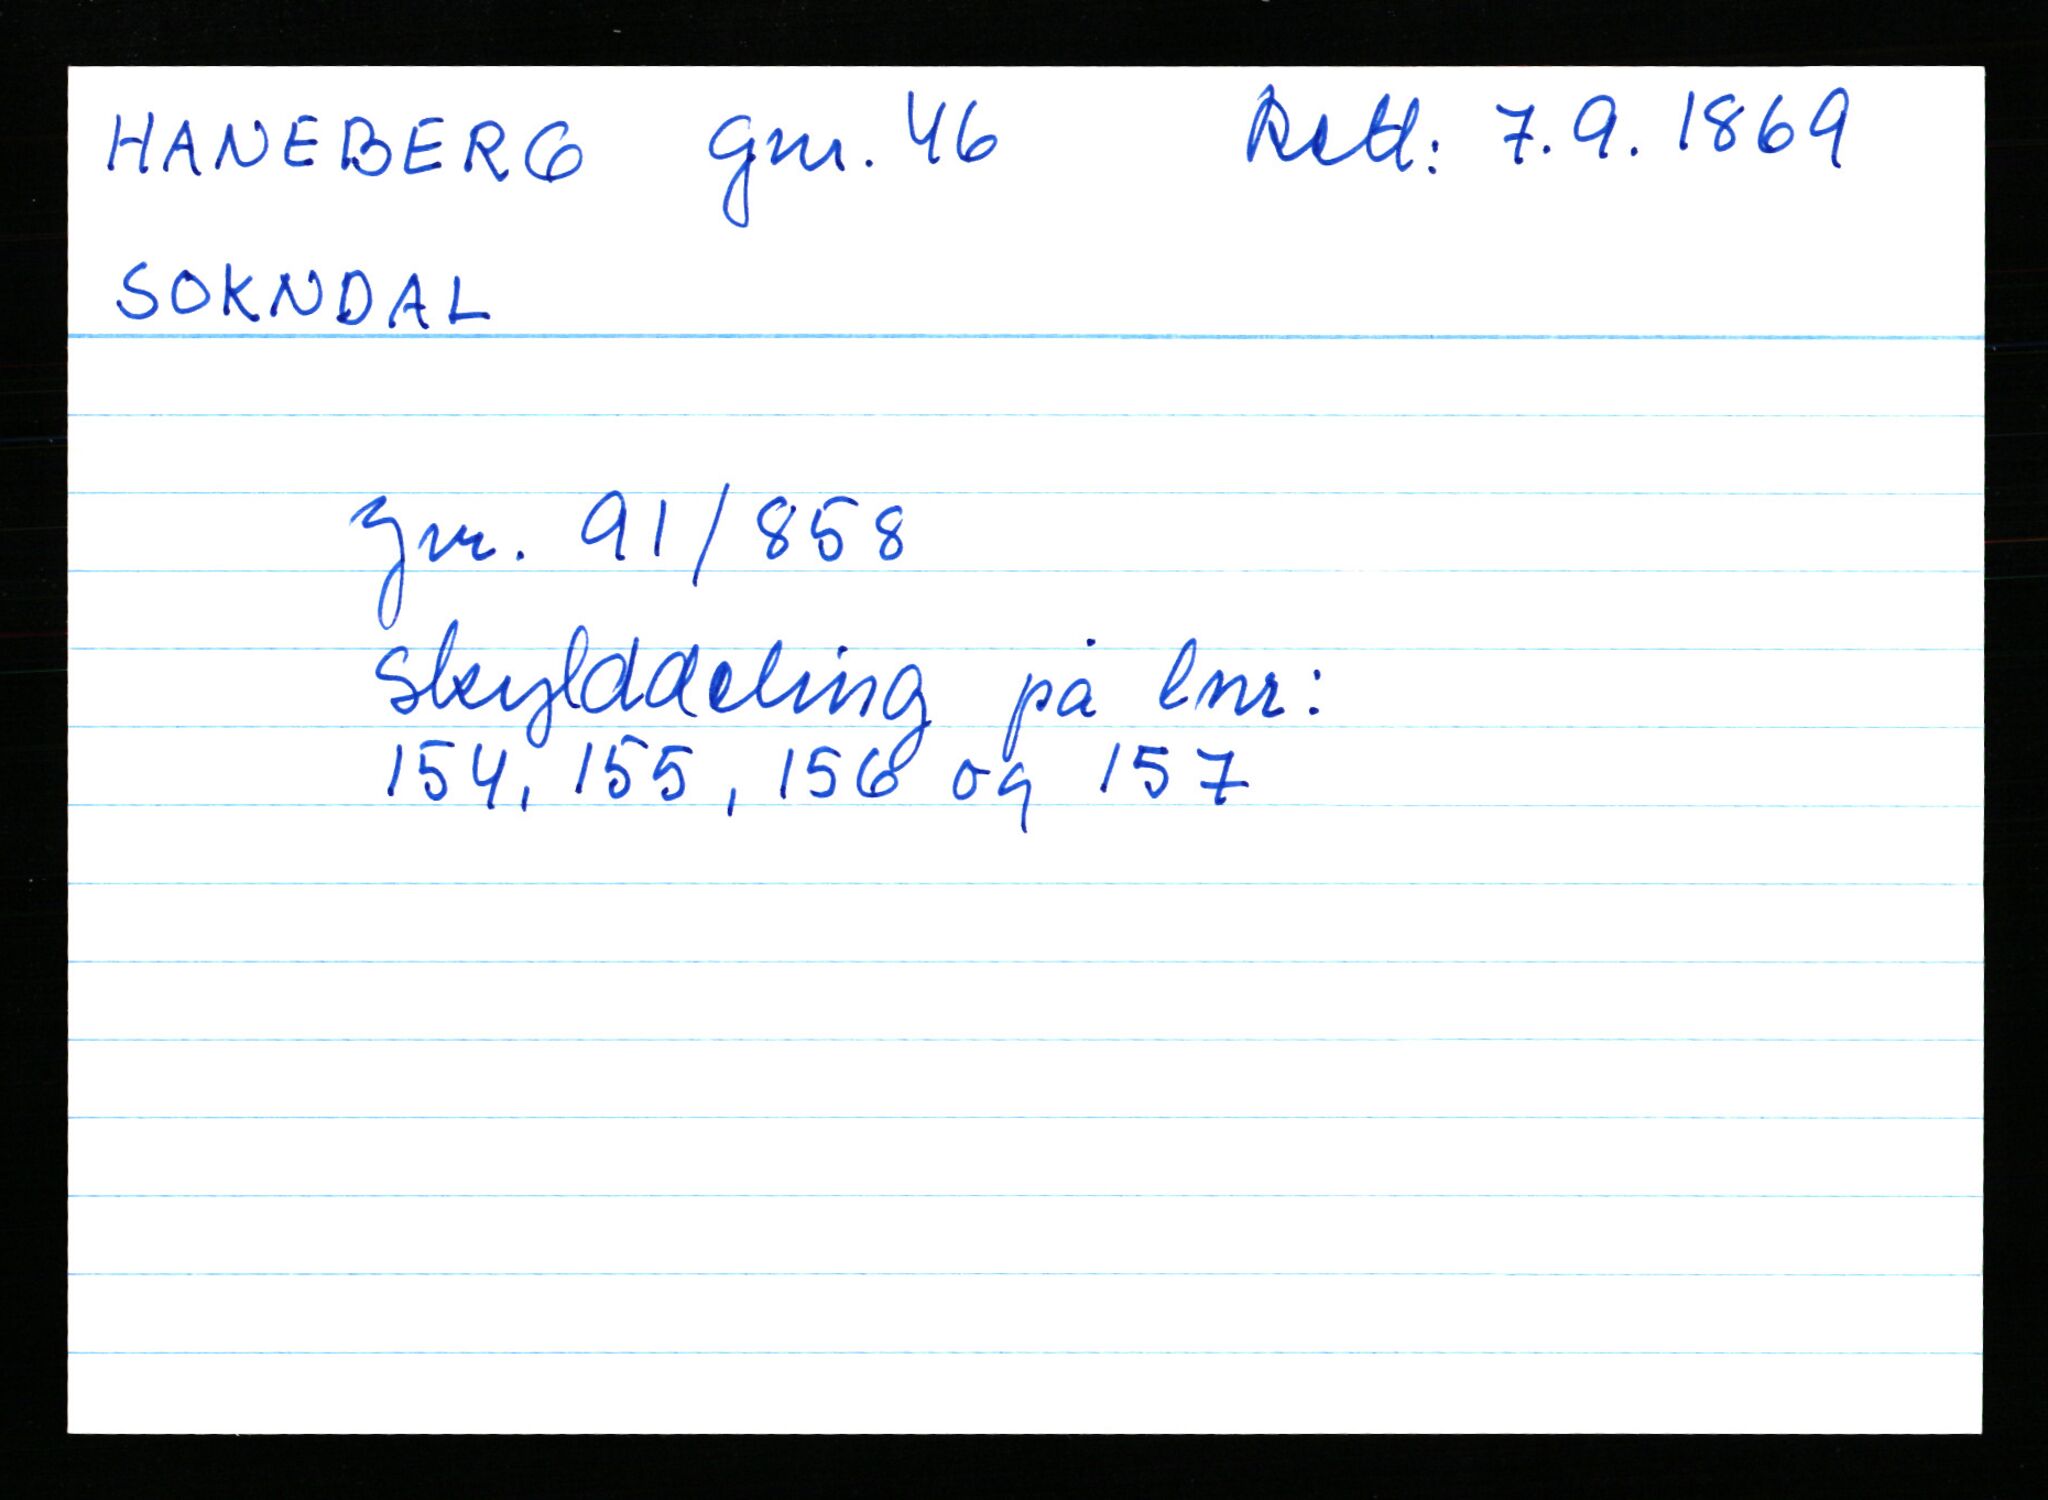 HANEBERG gnr. 46 Retl: 7.9.1869
SOKNDAL
Jnr. 91/858
Skylddeling på lnr:
154, 155, 156 og 157